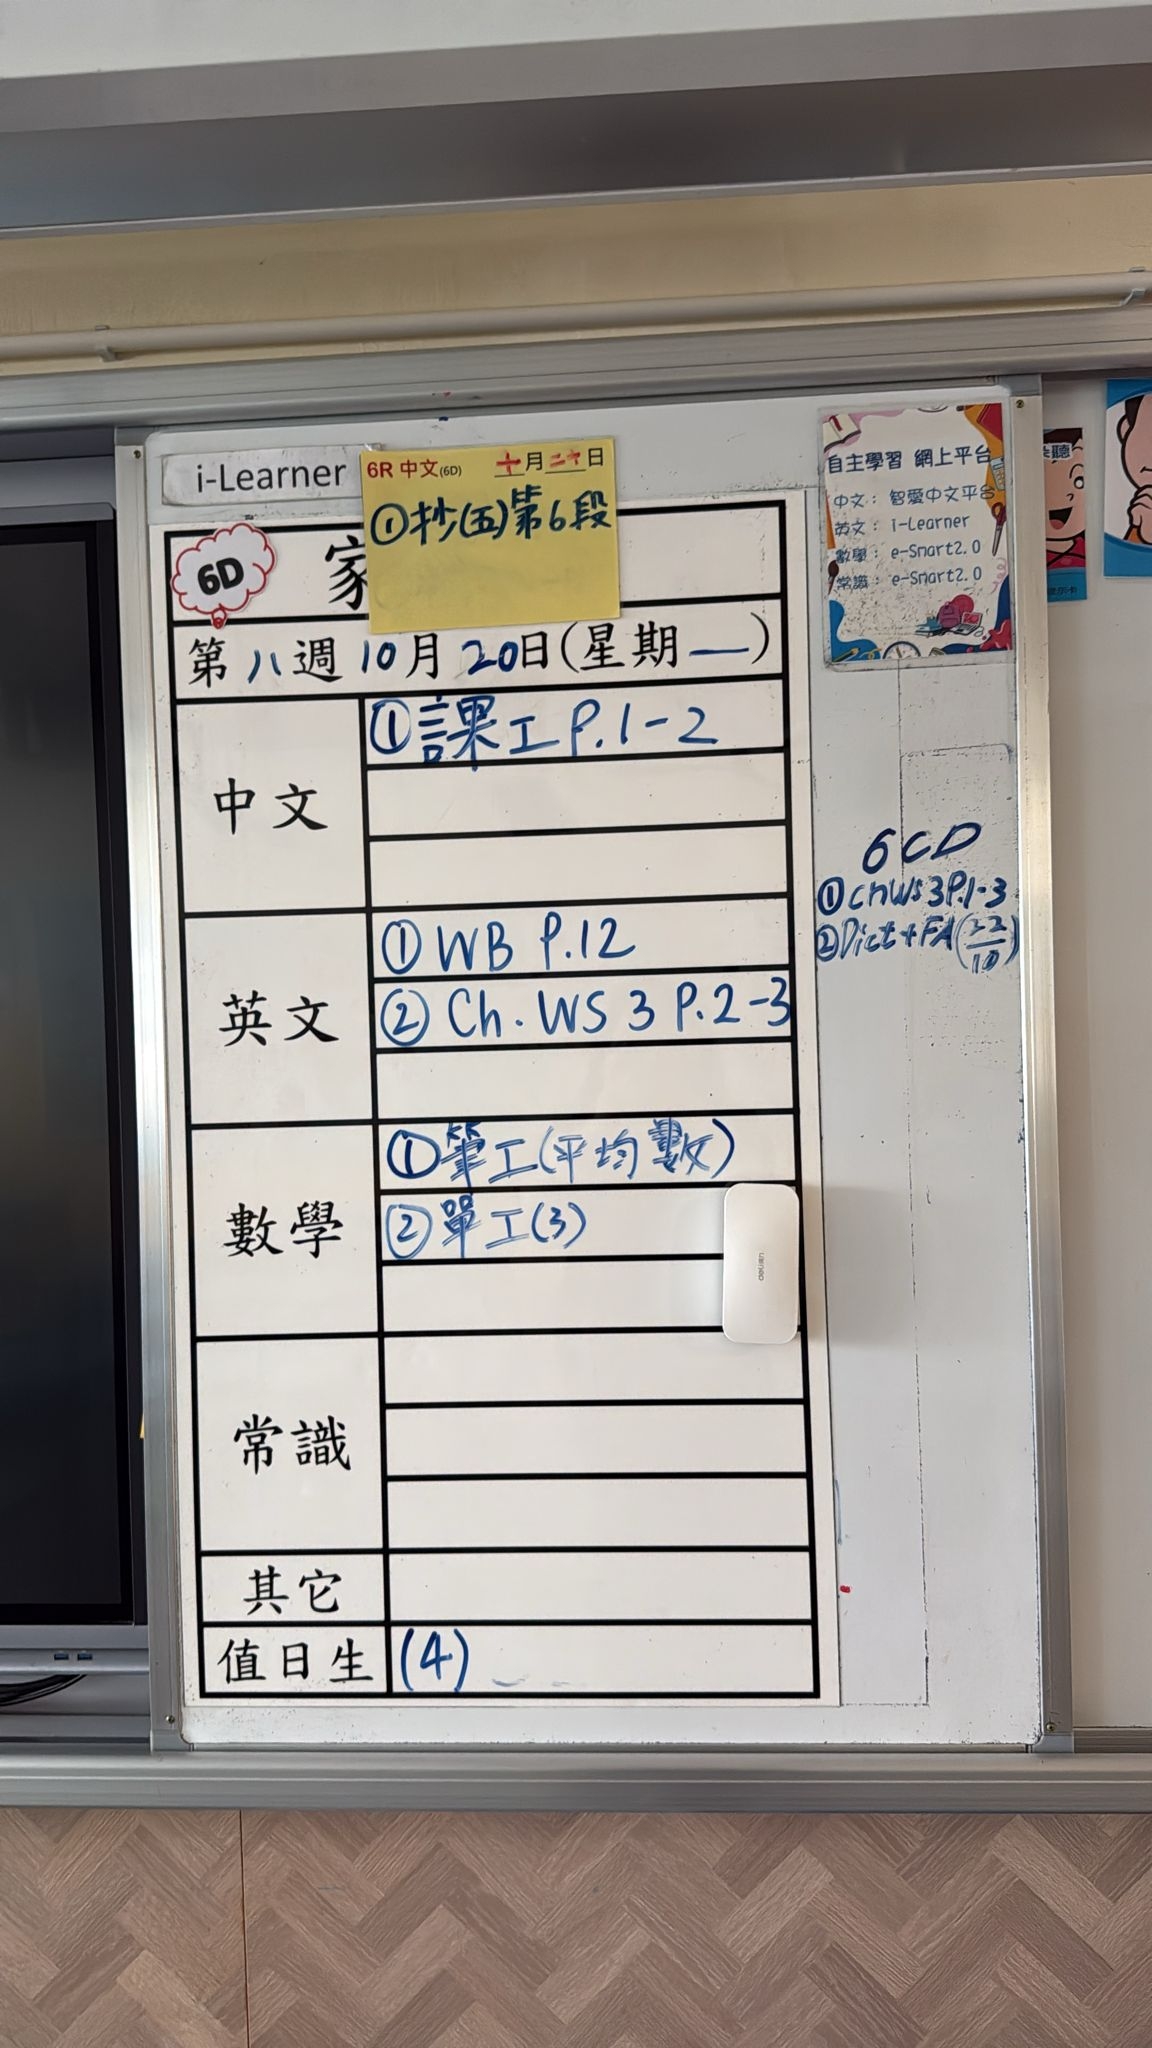 i-Learner
6R 中文(6D) 十月二十日
①抄(五)第6段
6D
家
第八週10月20日(星期一)
中文
①課工 P.1-2
英文
①WB P.12
②Ch. WS 3 P.2-3
數學
①筆工(平均數)
②單工(3)
常識
其它
值日生 (4)
deli
自主學習 網上平台
中文：智愛中文平台
英文：i-Learner
數學：e-Smart2.0
常識：e-Smart2.0
6CD
①ChWS 3P.1-3
②Dict+FA(22/10)